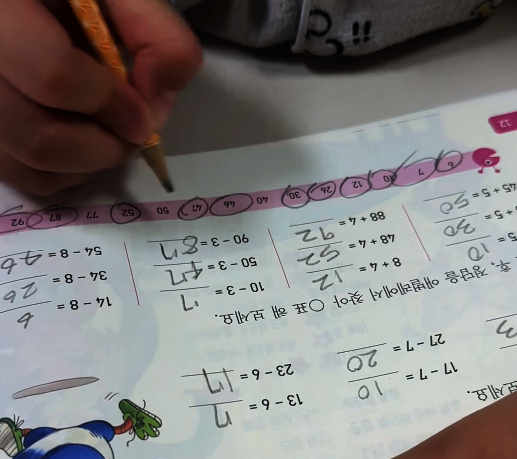 보세요.
17 - 7 = 10 13 - 6 = 7
3 27 - 7 = 20 23 - 6 = 17
후, 정답을 애벌레에서 찾아 ○표 해 보세요.
5 = 10 8 + 4 = 12 10 - 3 = 7 14 - 8 = 6
+ 5 = 30 48 + 4 = 52 50 - 3 = 47 34 - 8 = 26
45 + 5 = 50 88 + 4 = 92 90 - 3 = 87 54 - 8 = 46
6 7 10 12 26 30 40 46 47 50 52 77 87 92
12